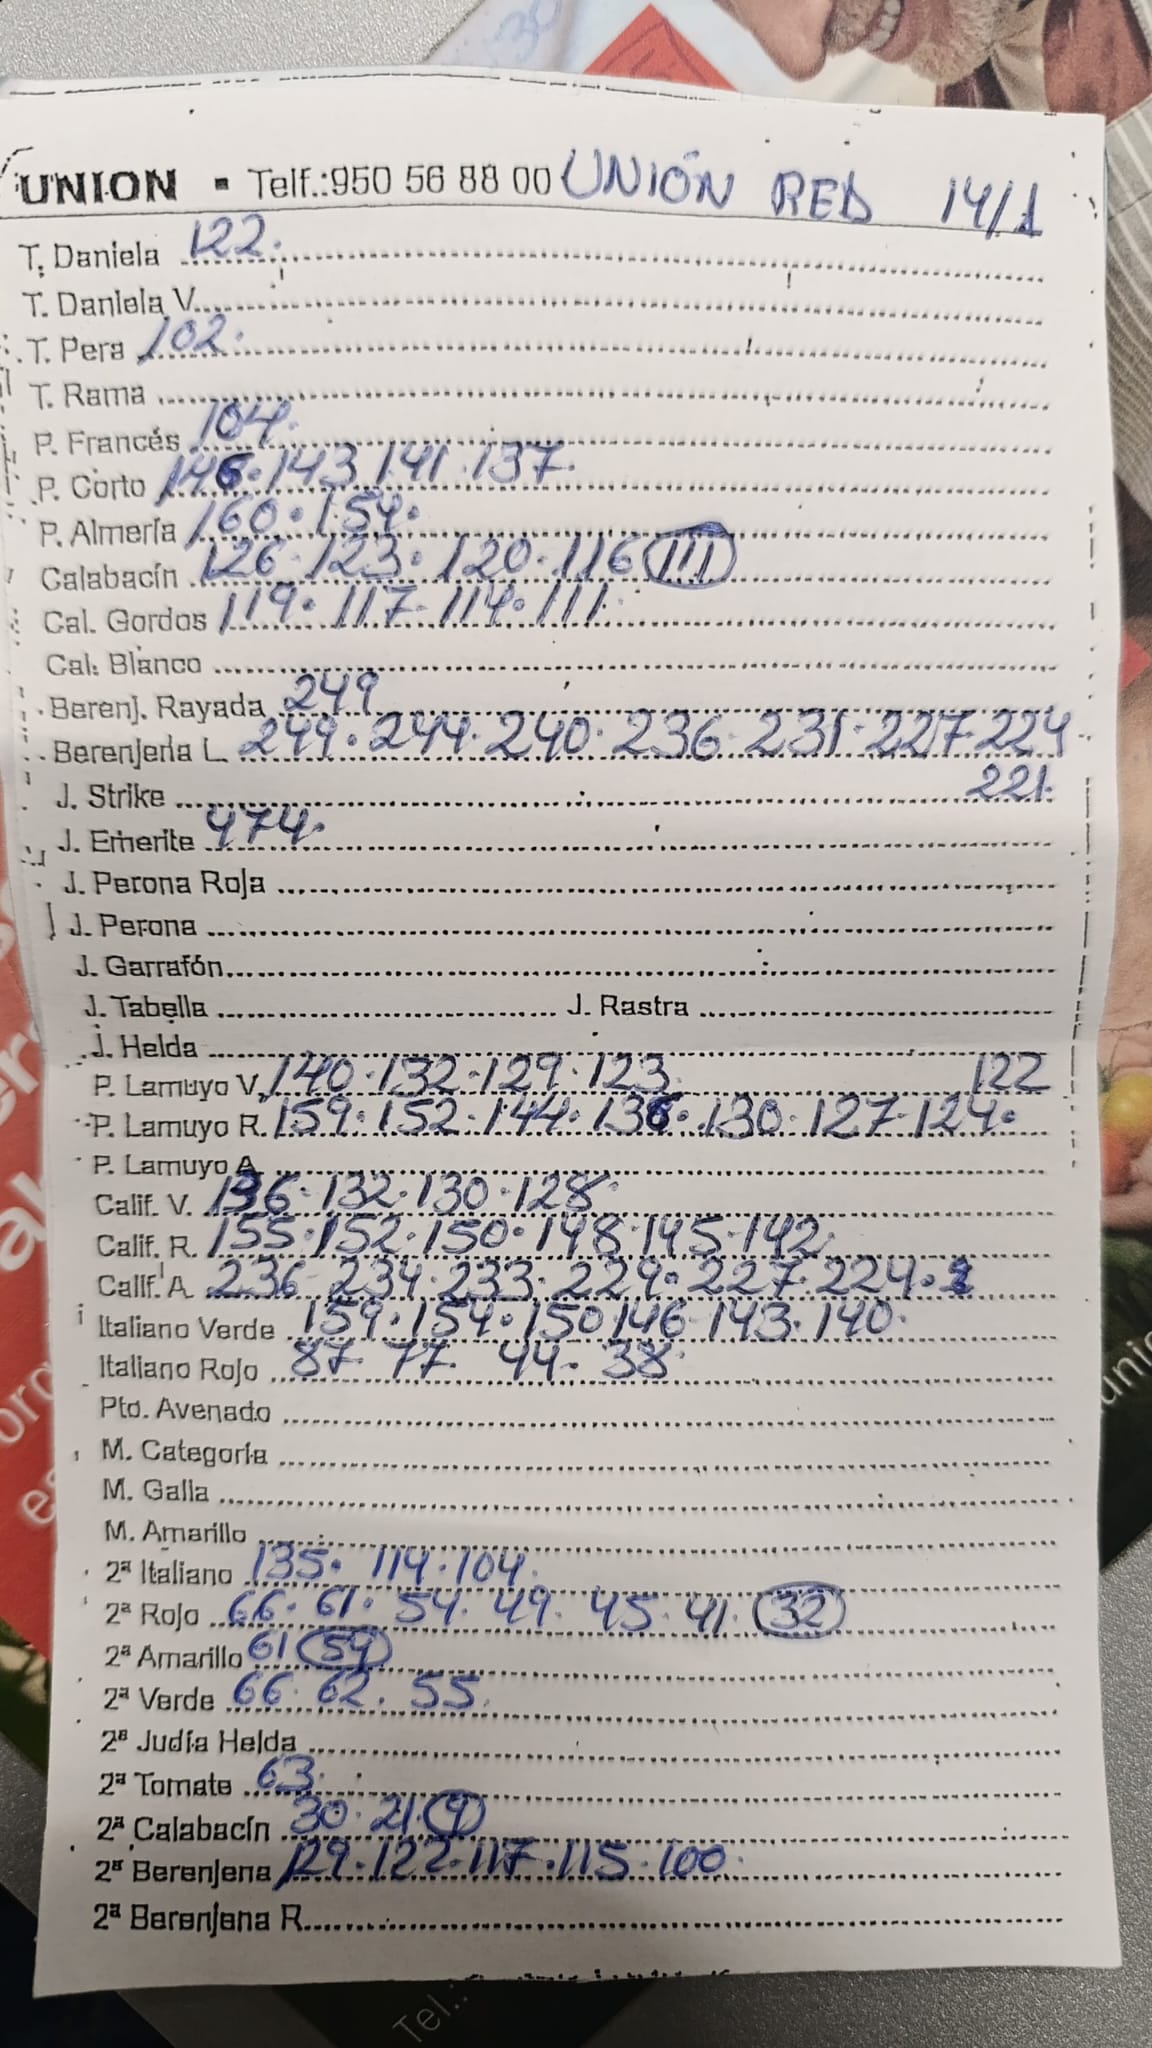 UNION ▪ Telf.:950 56 88 00 UNIÓN RED 14/1
T. Daniela 122.
T. Daniela V.
T. Pera 102.
T. Rama
P. Francés 104.
P. Corto 146. 143 141. 137.
P. Almería 160. 154.
Calabacín 126. 123. 120. 116 111
Cal. Gordos 119. 117. 114. 111.
Cal. Blanco
Berenj. Rayada 249
Berenjena L. 249. 244. 240. 236. 231. 227. 224
J. Strike 221.
J. Emerite 474.
J. Perona Roja
J. Perona
J. Garrafón
J. Tabella J. Rastra
J. Helda
P. Lamuyo V. 140. 132. 129. 123. 122
P. Lamuyo R. 159. 152. 144. 136. 130. 127. 124.
P. Lamuyo A.
Calif. V. 136. 132. 130. 128.
Calif. R. 155. 152. 150. 148. 145. 142.
Calif. A. 236 234. 233. 229. 227. 224.
Italiano Verde 159. 154. 150 146 143. 140.
Italiano Rojo 87. 77. 44. 38.
Pto. Avenado
M. Categoría
M. Galia
M. Amarillo
2ª Italiano 135. 114. 104.
2ª Rojo 66. 61. 54. 49. 45. 41. 32
2ª Amarillo 61 59
2ª Verde 66. 62. 55.
2ª Judía Helda
2ª Tomate 63.
2ª Calabacín 30. 21. 9
2ª Berenjena 129. 122. 117. 115. 100.
2ª Berenjena R.
Tel.: